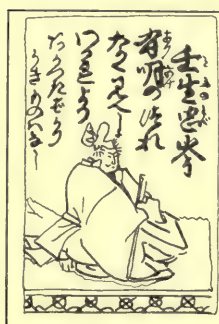 壬生忠岑
有明のつれ
なくみえし
わかれより
あかつきばかり
うきものはなし